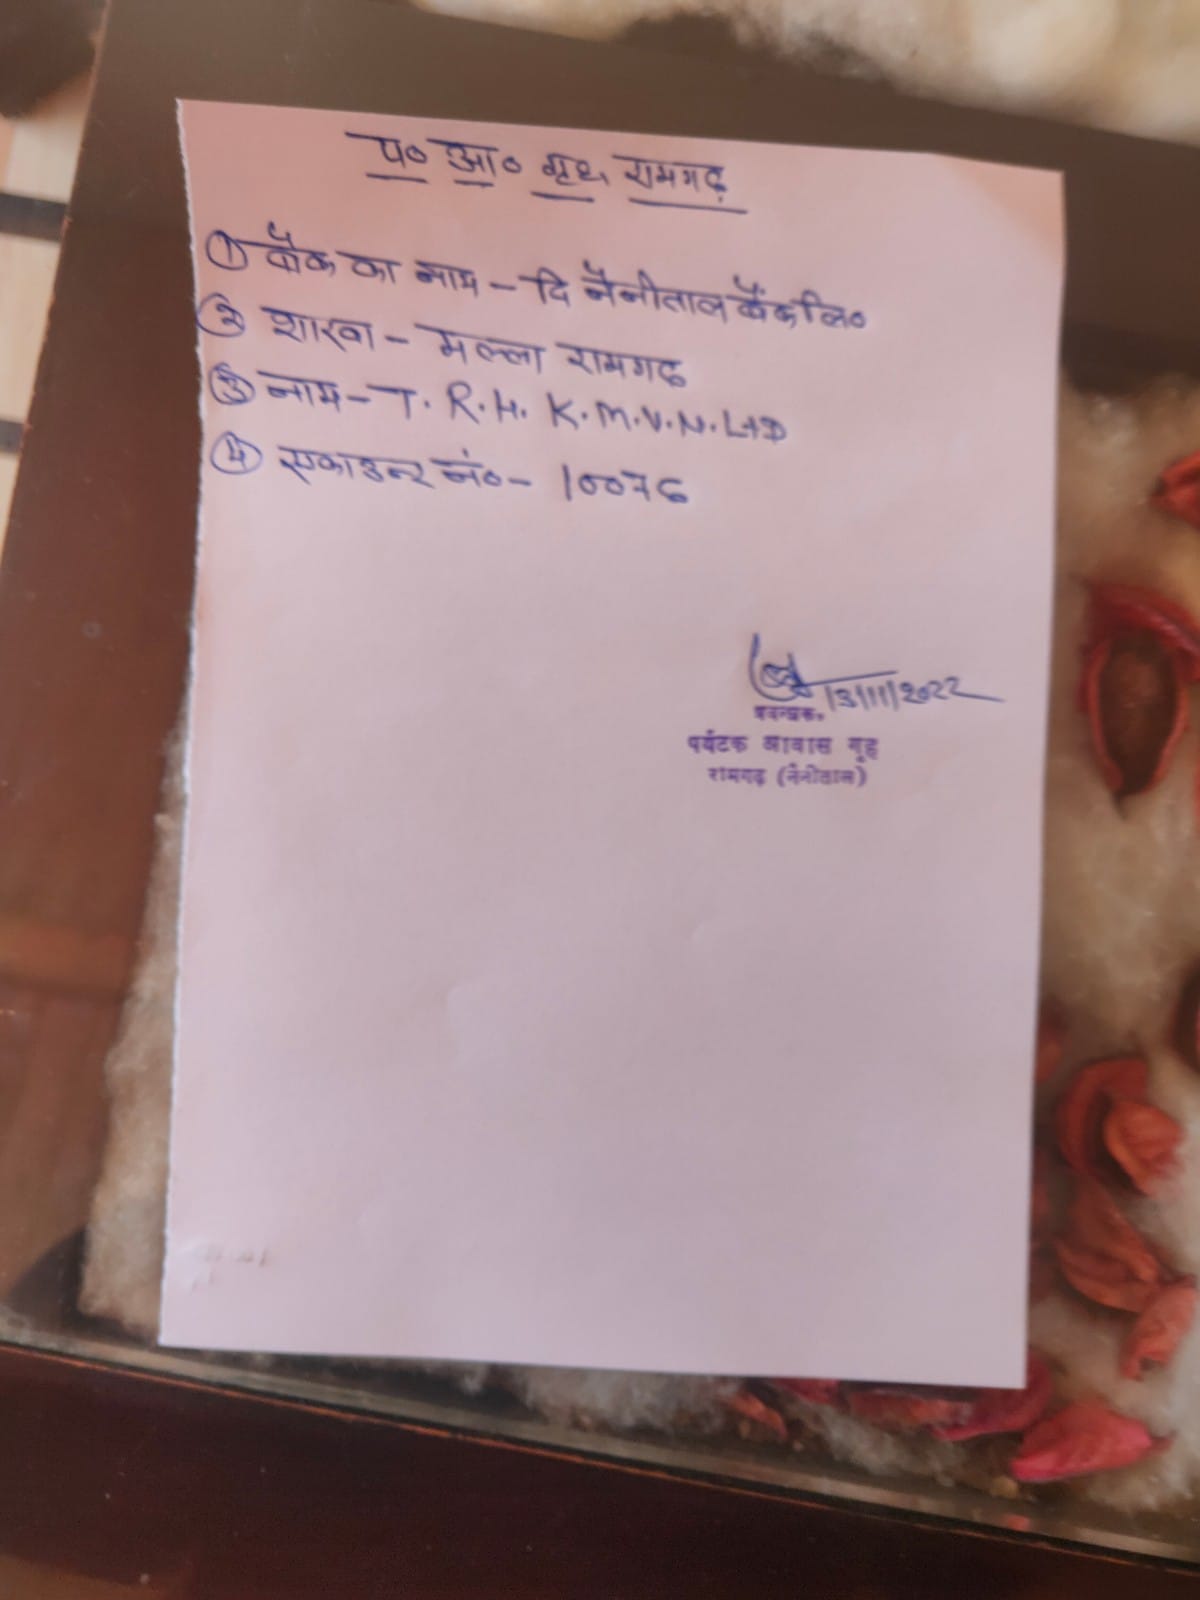 प० आ० गृह रामगढ़
① बैंक का नाम - दि नैनीताल बैंक लि०
② शाखा - मल्ला रामगढ़
③ नाम - T. R. H. K. M. V. N. LTD
④ एकाउन्ट नं० - 10076
13/11/2022
प्रबन्धक,
पर्यटक आवास गृह
रामगढ़ (नैनीताल)